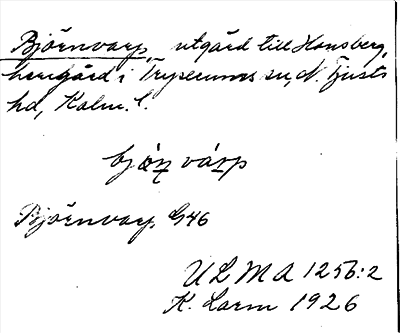 Björnvarp, utgård till Hansberg,
herrgård i Tryserums sn, N. Tjusts
hd, Kalm. l.
bjǿɳ várp
Björnvarp G46
ULMA 1256:2
K. Larm 1926